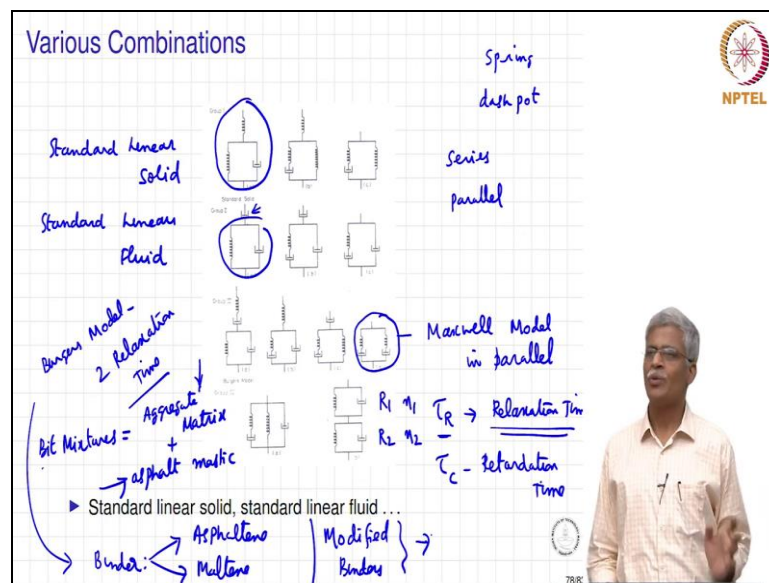 Various Combinations
Spring
dashpot
NPTEL
Group I
Standard Linear
Solid
Series
parallel
Standard Solid
Group II
Standard Linears
Fluid
Burgers Model -
2 Relaxation
Time
Maxwell Model
in parallel
Bit Mixtures =
Aggregate
Matrix
+
→ asphalt mastic
R1 n1
R2 n2
τR → Relaxation Tim
τC - Retardation
Time
▶ Standard linear solid, standard linear fluid …
Binder:
Asphaltene
Maltene
Modified
Binders
78/8